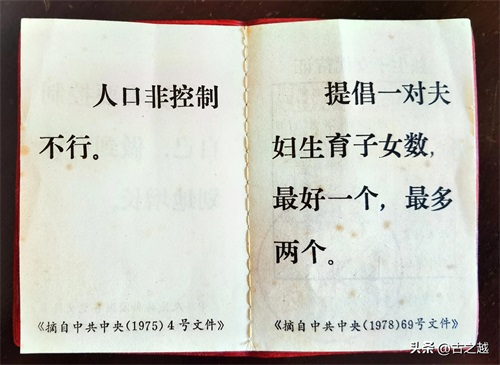 人口非控制
不行。
《摘自中共中央(1975)4号文件》
提倡一对夫
妇生育子女数,
最好一个, 最多
两个。
《摘自中共中央(1978)69号文件》
头条 @古之越